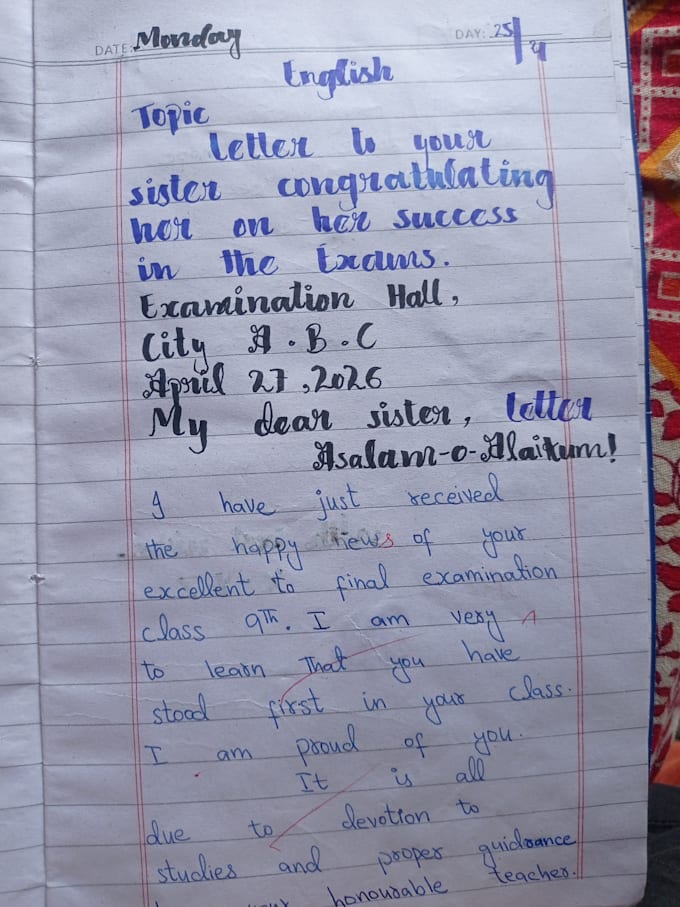 DATE: Monday DAY: 25/4
English
Topic
Letter to your
sister congratulating
her on her success
in the Exams.
Examination Hall,
City A.B.C
April 27, 2026
My dear sister, letter
Asalam-o-Alaikum!
I have just received
the happy news of your
excellent to final examination
class 9TH. I am very
to learn That you have
stood first in your class.
I am proud of you.
It is all
due to devotion to
studies and proper guidrance
honourable teacher.